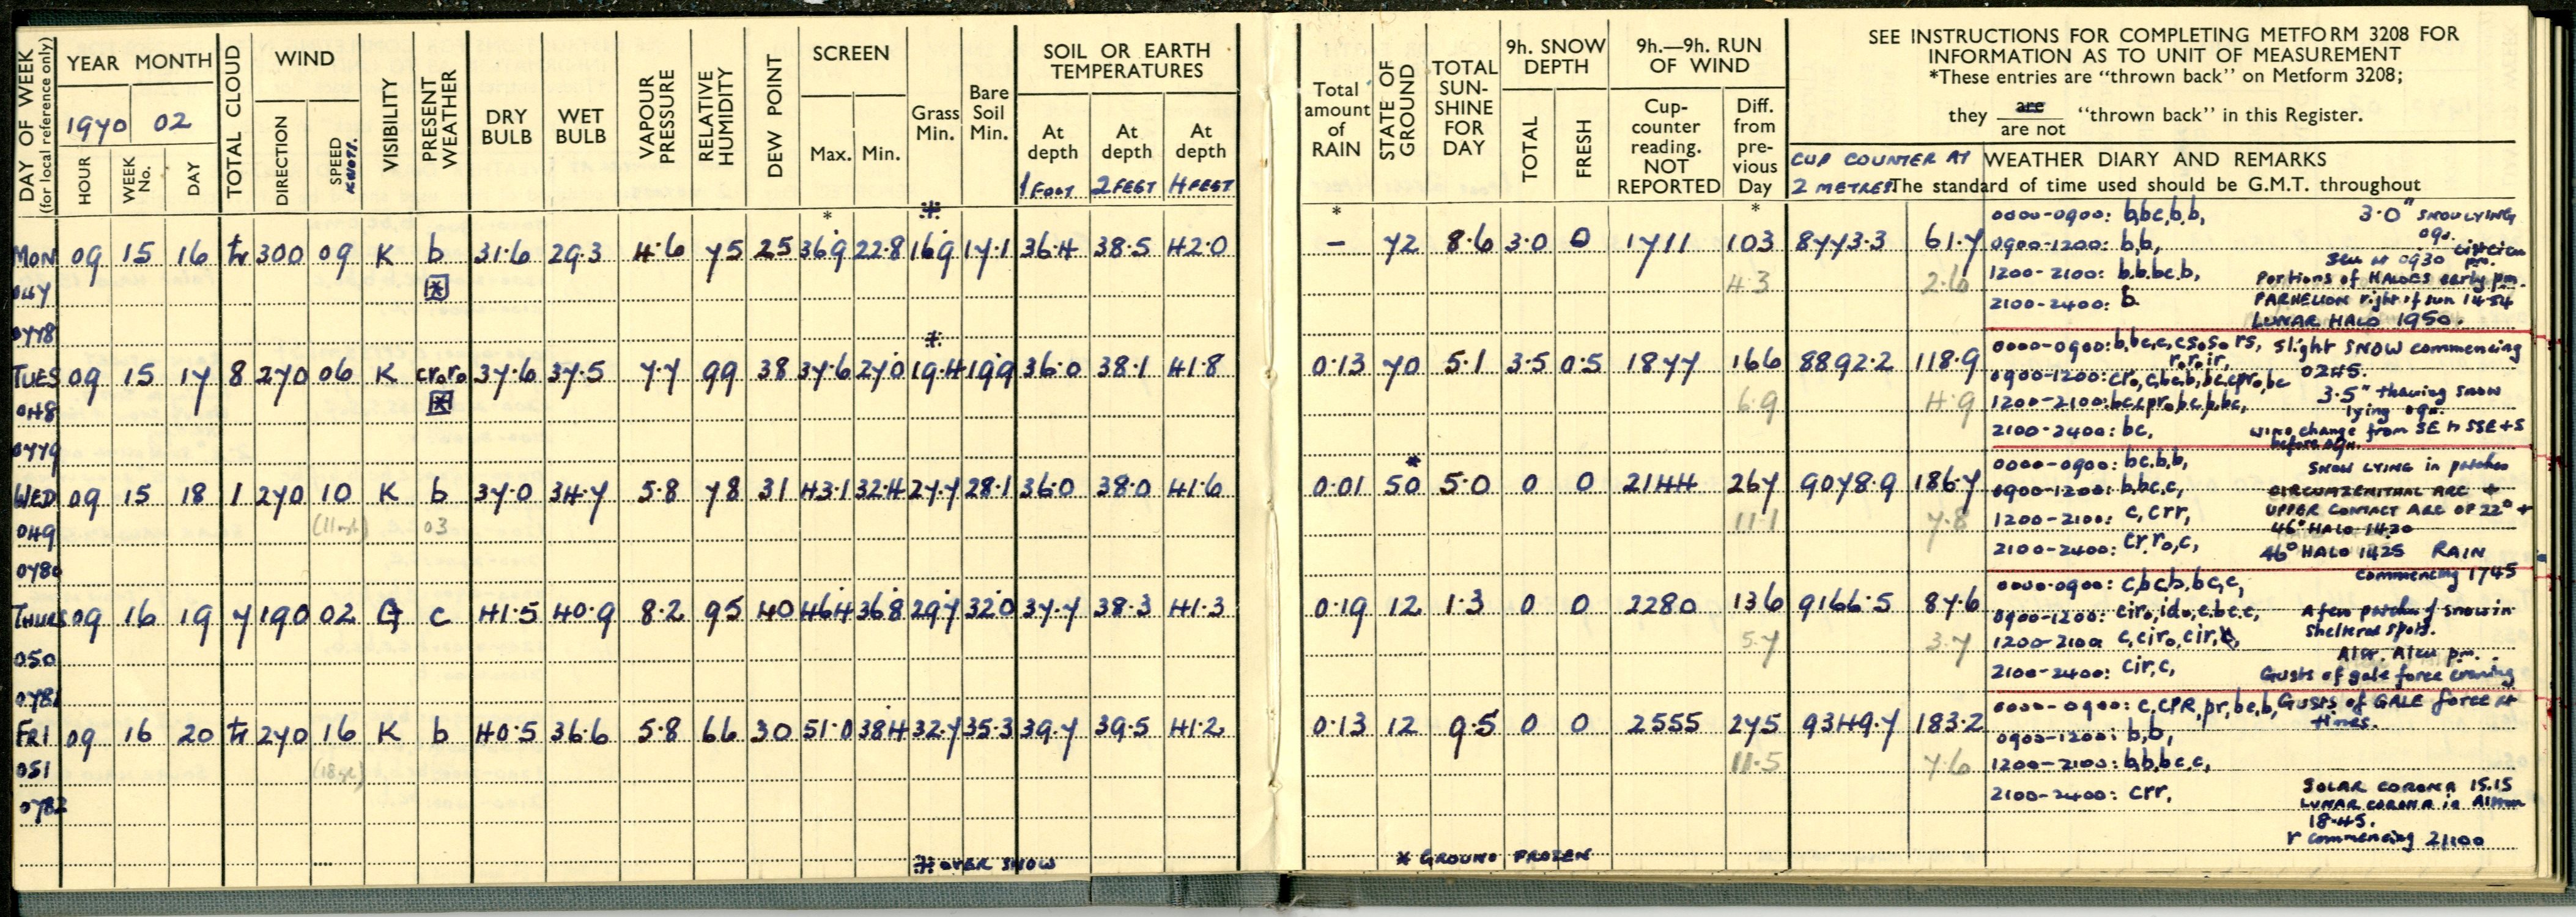 DAY OF WEEK
(for local reference only)
YEAR MONTH
1970 02
HOUR WEEK No. DAY
TOTAL CLOUD
WIND
DIRECTION SPEED KNOTS.
VISIBILITY
PRESENT WEATHER
DRY BULB
WET BULB
VAPOUR PRESSURE
RELATIVE HUMIDITY
DEW POINT
SCREEN
Max. Min.
Grass Min.
Bare Soil Min.
SOIL OR EARTH TEMPERATURES
At depth At depth At depth
1 FOOT 2 FEET 4 FEET
Total amount of RAIN
STATE OF GROUND
TOTAL SUN-SHINE FOR DAY
9h. SNOW DEPTH
TOTAL FRESH
9h.—9h. RUN OF WIND
Cup-counter reading. NOT REPORTED
Diff. from pre-vious Day
SEE INSTRUCTIONS FOR COMPLETING METFORM 3208 FOR
INFORMATION AS TO UNIT OF MEASUREMENT
*These entries are "thrown back" on Metform 3208;
they are / are not "thrown back" in this Register.
CUP COUNTER AT 2 METRES
WEATHER DIARY AND REMARKS
The standard of time used should be G.M.T. throughout
MON 09 15 16 tr 300 09 K b 31.6 29.3 4.6 75 25 36.9 22.8 16.9 17.1 36.4 38.5 42.0 – 72 8.6 3.0 0 1711 103 8773.3 61.7
047
4.3 2.6
0778
0000-0900: b,bc,b,b, 3.0" SNOW LYING 09h.
0900-1200: b,b,
seen at 0930
1200-2100: b,b,bc,b, Portions of HALOES early pm.
2100-2400: b PARHELION right of sun 1454
LUNAR HALO 1950.
TUES 09 15 17 8 270 06 K cr₀r₀ 37.6 37.5 7.7 99 38 37.6 27.0 19.4 19.9 36.0 38.1 41.8 0.13 70 5.1 3.5 0.5 1877 166 8892.2 118.9
048
6.9 4.9
0779
0000-0900: slight SNOW commencing
0245.
0900-1200:
3.5" thawing snow
lying 09h.
1200-2100:
2100-2400: bc, wind change from SE to SSE+S
before 09h.
WED 09 15 18 1 270 10 K b 37.0 34.7 5.8 78 31 43.1 32.4 27.7 28.1 36.0 38.0 41.6 0.01 50 5.0 0 0 2144 267 9078.9 186.7
03
049
11.1 7.8
0780
0000-0900: bc,b,b, SNOW LYING in patches
0900-1200: b,bc,c, CIRCUMZENITHAL ARC +
UPPER CONTACT ARC OF 22° +
1200-2100: c,crr, 46° HALO 1420
2100-2400: cr,r₀,c, 46° HALO 1425 RAIN
commencing 1745
THURS 09 16 19 7 190 02 G c 41.5 40.9 8.2 95 40 46.4 36.8 29.7 32.0 37.7 38.3 41.3 0.19 12 1.3 0 0 2280 136 9166.5 87.6
050
5.7 3.7
0781
0000-0900: c,bc,b,bc,c,
0900-1200: cir₀,id₀,c,bc,c, A few patches of snow in
sheltered spots.
1200-2100 c,cir₀,cir,
pm.
2100-2400: cir,c, Gusts of gale force evening
FRI 09 16 20 tr 270 16 K b 40.5 36.6 5.8 66 30 51.0 38.4 32.7 35.3 39.7 39.5 41.2 0.13 12 9.5 0 0 2555 275 9349.7 183.2
051
11.5 7.6
0782
0000-0900: c,cPR,pr,bc,b, Gusts of GALE force at
times.
0900-1200: b,b,
1200-2100: b,b,bc,c,
2100-2400: crr, SOLAR CORONA 15.15
LUNAR CORONA in
18.45.
r commencing 2100
* OVER SNOW
* GROUND FROZEN